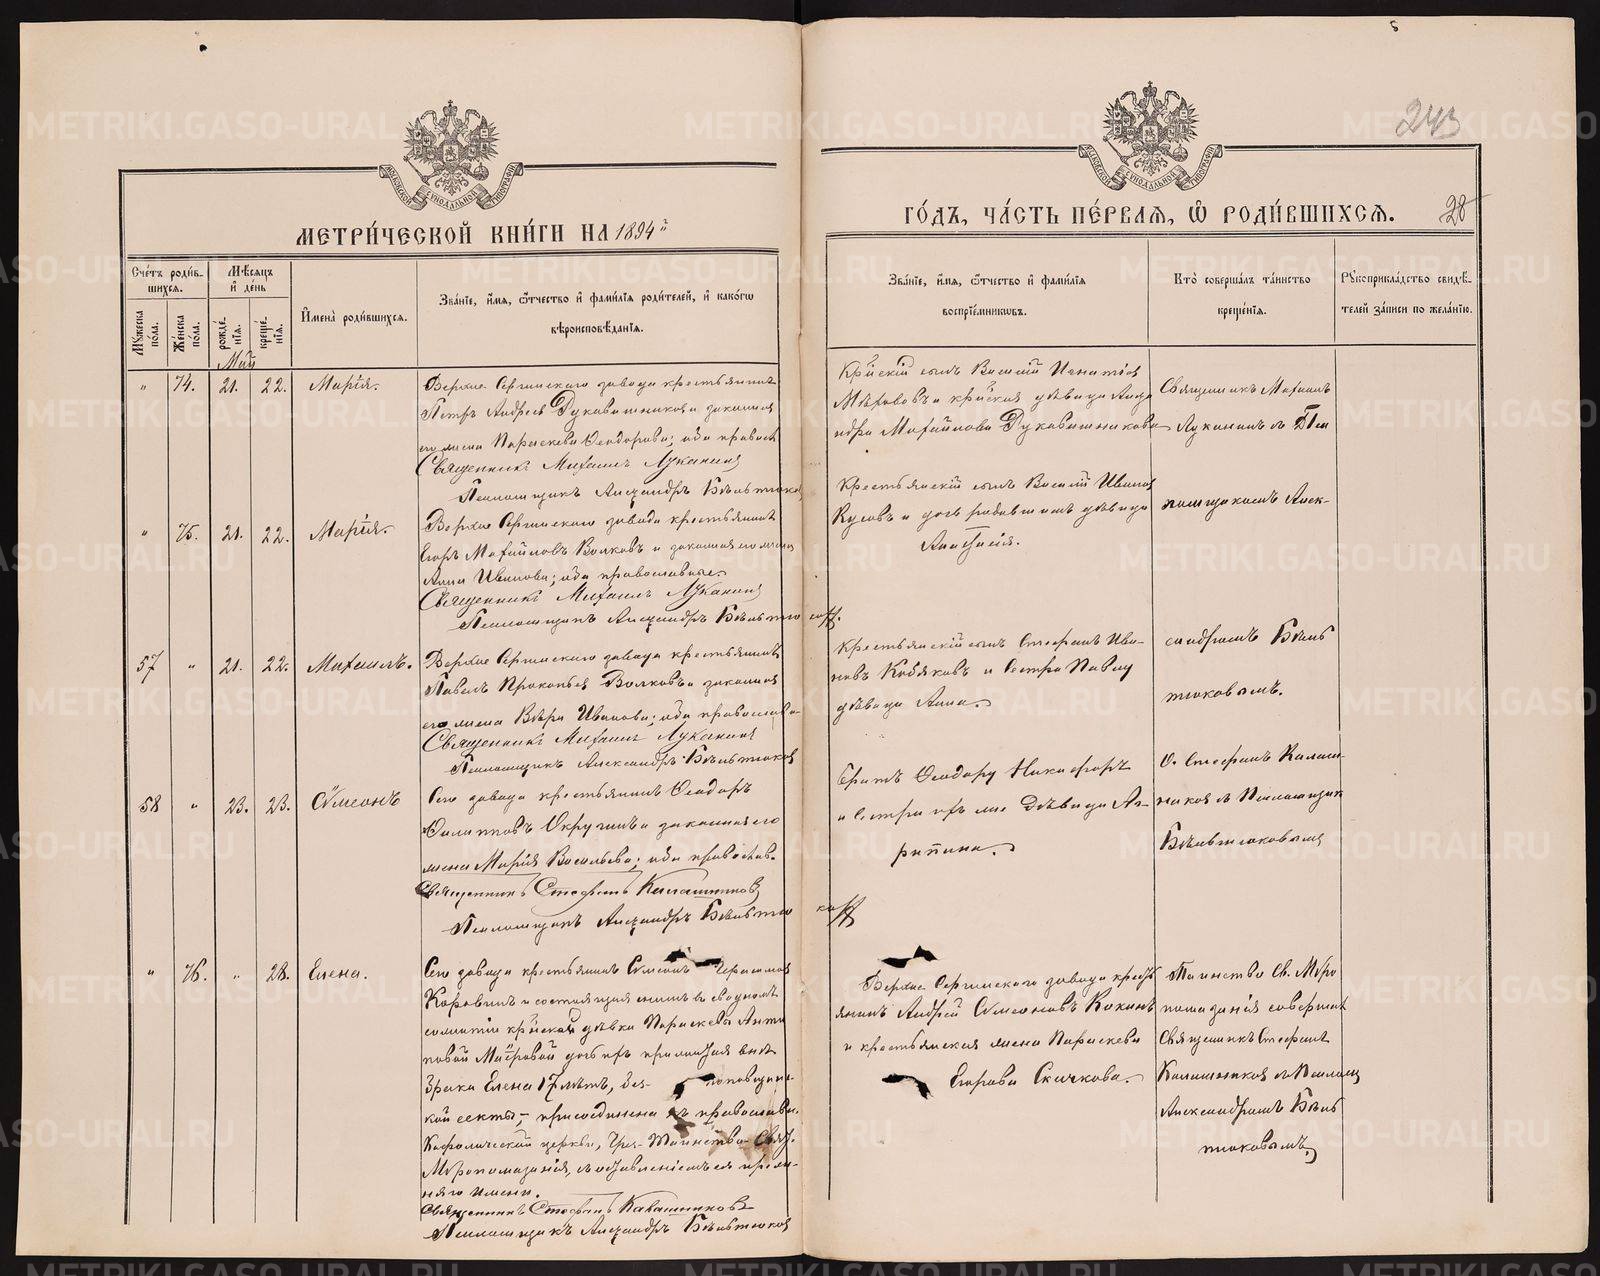 243
МЕТРИ́ЧЕСКОЙ КНИ́ГИ НА 1894й
ГО́ДЪ, ЧА́СТЬ ПЕ́РВАЯ, Ѡ РОДИ́ВШИХСЯ.
28
Сче́тъ роди́вшихся.
Мꙋ́жеска по́ла.
Же́нска по́ла.
Мѣ́сяцъ и де́нь
рожде́нїя.
креще́нїя.
Имена̀ роди́вшихся.
Зва́нїе, и́мя, ѻ҆́тчество и҆ фами́лїя роди́телей, и҆ како́гѡ
вѣроисповѣ́данїя.
Зва́нїе, и́мя, ѻ҆́тчество и҆ фами́лїя
воспрїе́мникѡвъ.
Кто̀ соверша́лъ та́инство
креще́нїя.
Рꙋкоприкла́дство свидѣ́-
телей за́писи по жела́нїю.
Май
" 74. 21. 22. Марія.
Верхне Сергинскаго завода крестьянинъ
Петръ Андреевъ Рукавишниковъ и законная
его жена Параскева Ѳеодорова; оба правосл.
Священникъ Михаилъ Луканинъ
Псаломщикъ Александръ
Крестьянскій сынъ Василій Игнатіевъ
и крестьянская дѣвица
Михайлова Рукавишникова
Священникъ Михаилъ
Луканинъ съ Пса
" 75. 21. 22. Марія.
Верхне Сергинскаго завода крестьянинъ
Егоръ Михайловъ Волковъ и законная его жена
Анна Иванова; оба православные.
Священникъ Михаилъ Луканинъ
Псаломщикъ Александръ
Крестьянскій сынъ Василій Ивановъ
Кусовъ и дочь дѣвица
Анастасія.
ломщикомъ Алек-
57 " 21. 22. Михаилъ.
Верхне Сергинскаго завода крестьянинъ
Павелъ Прокопьевъ Волковъ и законная
его жена Вѣра Иванова; оба православ-
Священникъ Михаилъ Луканинъ
Псаломщикъ Александръ
Крестьянскій сынъ Стефанъ Ива-
новъ Кобяковъ и сестра Павлу
дѣвица Анна.
сандромъ
58 " 23. 23. Сѵмеонъ
Сего завода крестьянинъ Ѳеодоръ
Филипповъ и законная его
жена Марія Васильева; оба православ.
Священникъ Стефанъ Калашниковъ
Псаломщикъ Александръ
Братъ Ѳеодору Никифоръ
и сестра ихъ же дѣвица Аг-
рипина.
О. Стефанъ Калаш-
никовъ съ Псаломщик
" 76. " 28. Елена.
Сего завода крестьянинъ Сѵмеонъ Герасимовъ
Коровинъ и состоящая съ нимъ въ сводномъ
сожитіи крестьянская дѣвка Параскева Анти
повой дочь ихъ прижитая внѣ
брака Елена 17 лѣтъ,
кой секты, присоединена къ православн.
Каѳолической церкви, чрез Таинство Свят.
Мѵропомазанія, съ оставленіемъ ея преж-
няго имени.
Священникъ Стефанъ Калашниковъ
Псаломщикъ Александръ
Верхне Сергинскаго завода кресть
янинъ Андрей Сѵмеоновъ Кокинъ
и крестьянская жена Параскева
Егорова Скачкова.
Таинство Св. Мѵро
помазанія совершалъ
Священникъ Стефанъ
Калашниковъ съ Псалом
Александромъ